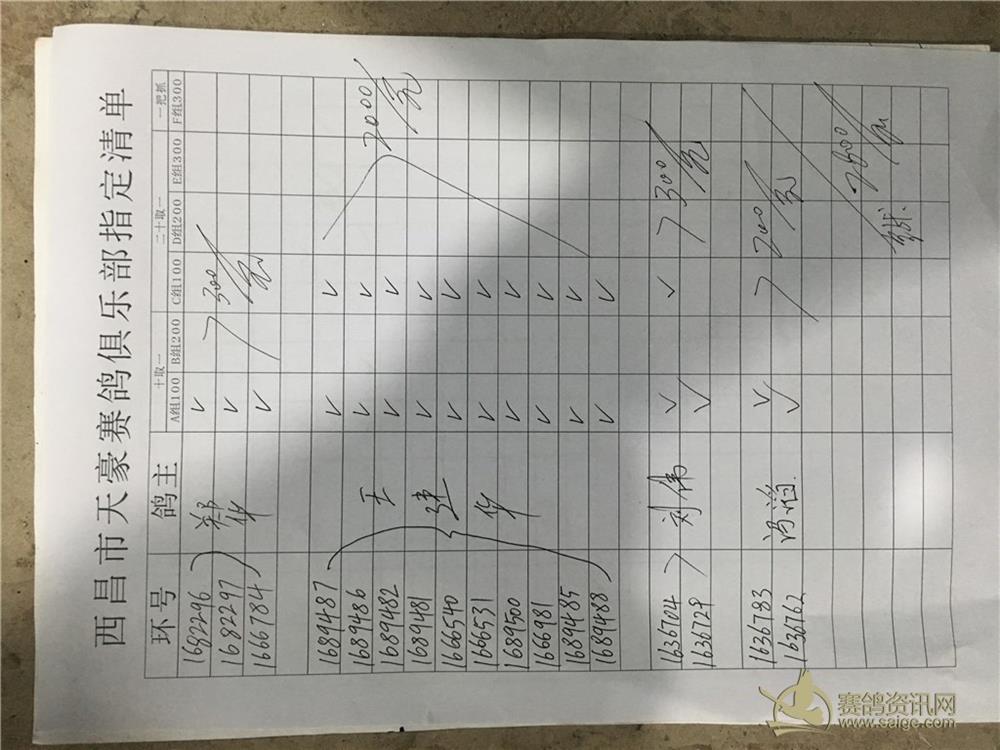 西昌市天豪赛鸽俱乐部指定清单
环号 鸽主 十取一 二十取一 一把抓
A组100 B组200 C组100 D组200 E组300 F组300
1682296 ✓
1682297 ✓ 300元
1666784 ✓
1689487 ✓ ✓
1689486 王 ✓ ✓ 2000元
1689482 ✓ ✓
1689481 建 ✓ ✓
1666540 ✓ ✓
1666531 华 ✓ ✓
1689500 ✓ ✓
166981 ✓ ✓
1689485 ✓ ✓
1689488 ✓ ✓
1636704 刘伟 ✓ ✓ 300元
1636729 ✓
1636783 ✓ 200元
1636762 ✓
赛鸽资讯网
www.saige.com